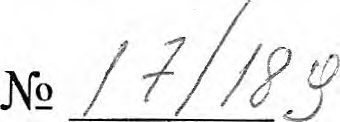 № 17/189